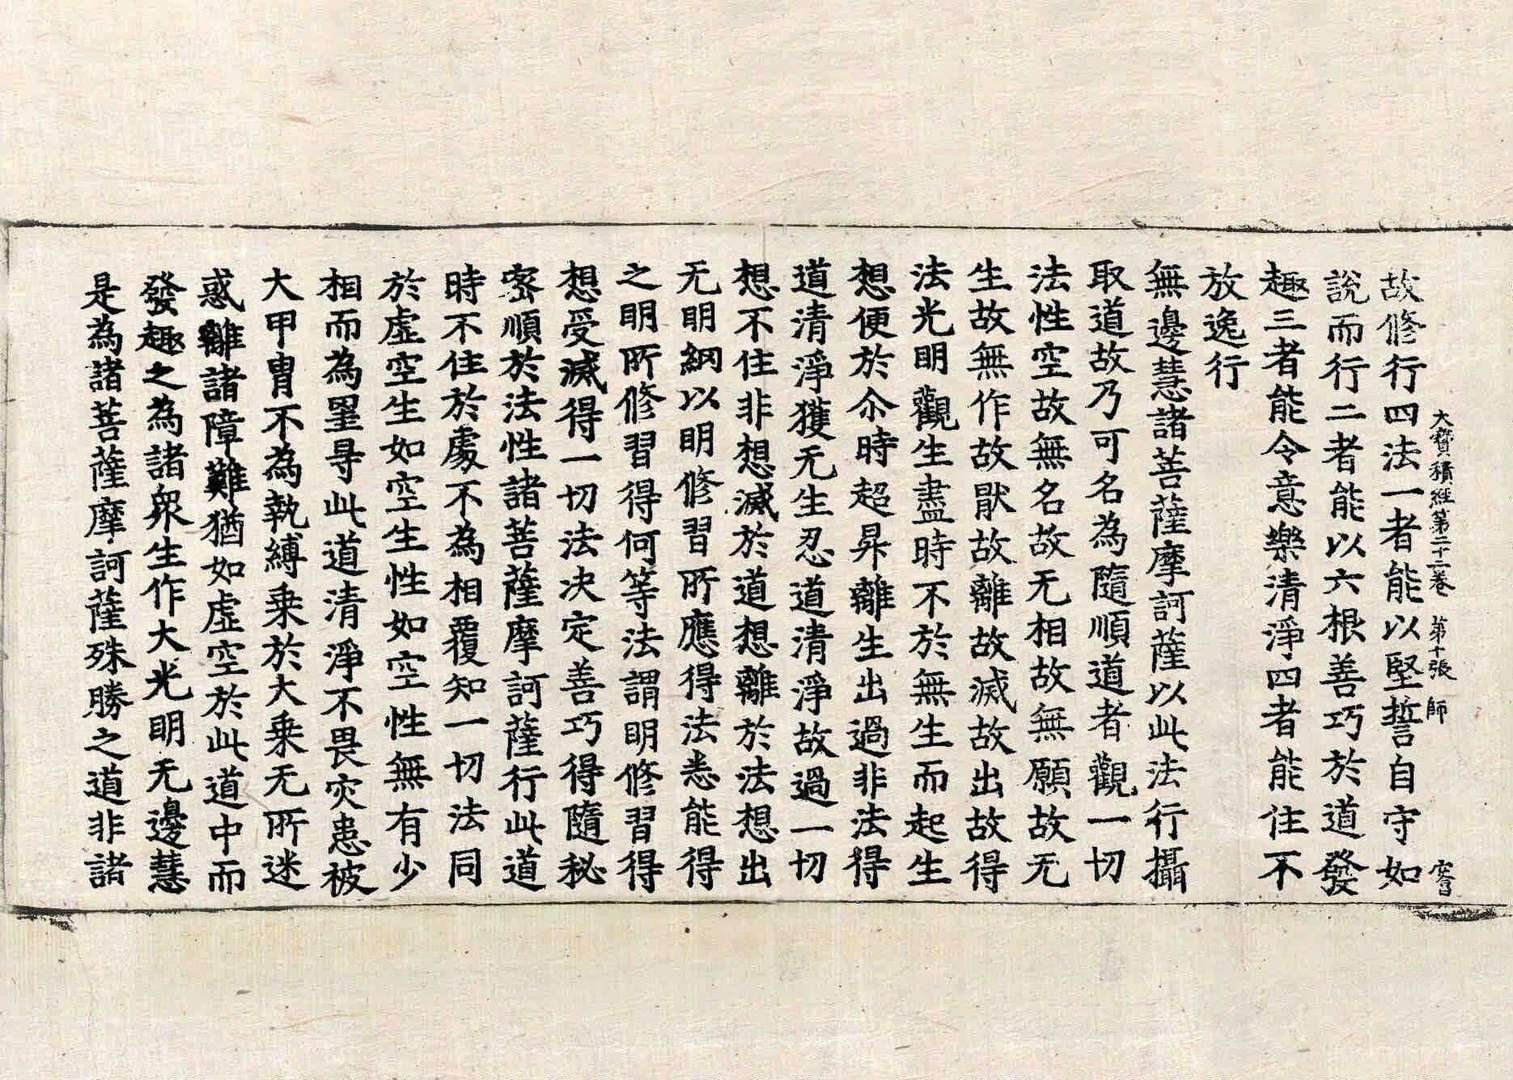 大寶積經第二十二卷 第十張 師
故修行四法一者能以堅誓自守如
說而行二者能以六根善巧於道發
趣三者能令意樂清淨四者能住不
放逸行
無邊慧諸菩薩摩訶薩以此法行攝
取道故乃可名為隨順道者觀一切
法性空故無名故无相故無願故无
生故無作故猒故離故滅故出故得
法光明觀生盡時不於無生而起生
想便於尒時超昇離生出過非法得
道清淨獲无生忍道清淨故過一切
想不住非想滅於道想離於法想出
无明網以明修習所應得法悉能得
之明所修習得何等法謂明修習得
想受滅得一切法決定善巧得隨秘
密順於法性諸菩薩摩訶薩行此道
時不住於處不為相覆知一切法同
於虛空生如空生性如空性無有少
相而為罣㝵此道清淨不畏灾患被
大甲冑不為執縛乗於大乗无所迷
惑離諸障難猶如虛空於此道中而
發趣之為諸衆生作大光明无邊慧
是為諸菩薩摩訶薩殊勝之道非諸